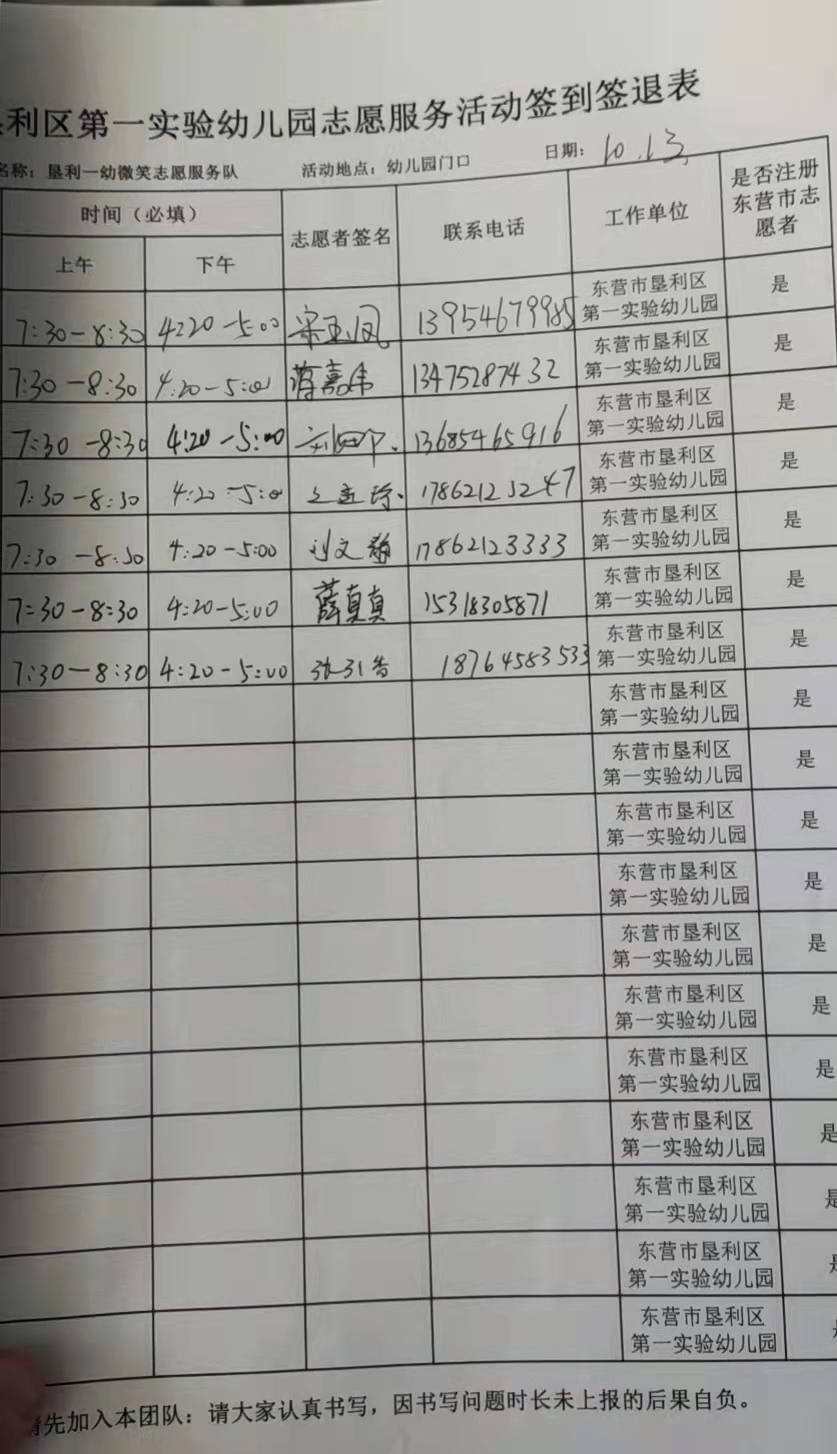 利区第一实验幼儿园志愿服务活动签到签退表
名称：垦利一幼微笑志愿服务队 活动地点：幼儿园门口 日期：10.13
时间（必填） 志愿者签名 联系电话 工作单位 是否注册东营市志愿者
上午 下午
7:30-8:30 4:20-5:00 宋玉凤 13954679985 东营市垦利区第一实验幼儿园 是
7:30-8:30 4:20-5:00 蒋嘉伟 13475287432 东营市垦利区第一实验幼儿园 是
7:30-8:30 4:20-5:00 13685465916 东营市垦利区第一实验幼儿园 是
7:30-8:30 4:20-5:00 17862123247 东营市垦利区第一实验幼儿园 是
7:30-8:30 4:20-5:00 刘文静 17862123333 东营市垦利区第一实验幼儿园 是
7:30-8:30 4:20-5:00 薛真真 15318305871 东营市垦利区第一实验幼儿园 是
7:30-8:30 4:20-5:00 18764583533 东营市垦利区第一实验幼儿园 是
东营市垦利区第一实验幼儿园 是
东营市垦利区第一实验幼儿园 是
东营市垦利区第一实验幼儿园 是
东营市垦利区第一实验幼儿园 是
东营市垦利区第一实验幼儿园 是
东营市垦利区第一实验幼儿园 是
东营市垦利区第一实验幼儿园 是
东营市垦利区第一实验幼儿园 是
东营市垦利区第一实验幼儿园 是
东营市垦利区第一实验幼儿园 是
东营市垦利区第一实验幼儿园 是
请先加入本团队：请大家认真书写，因书写问题时长未上报的后果自负。